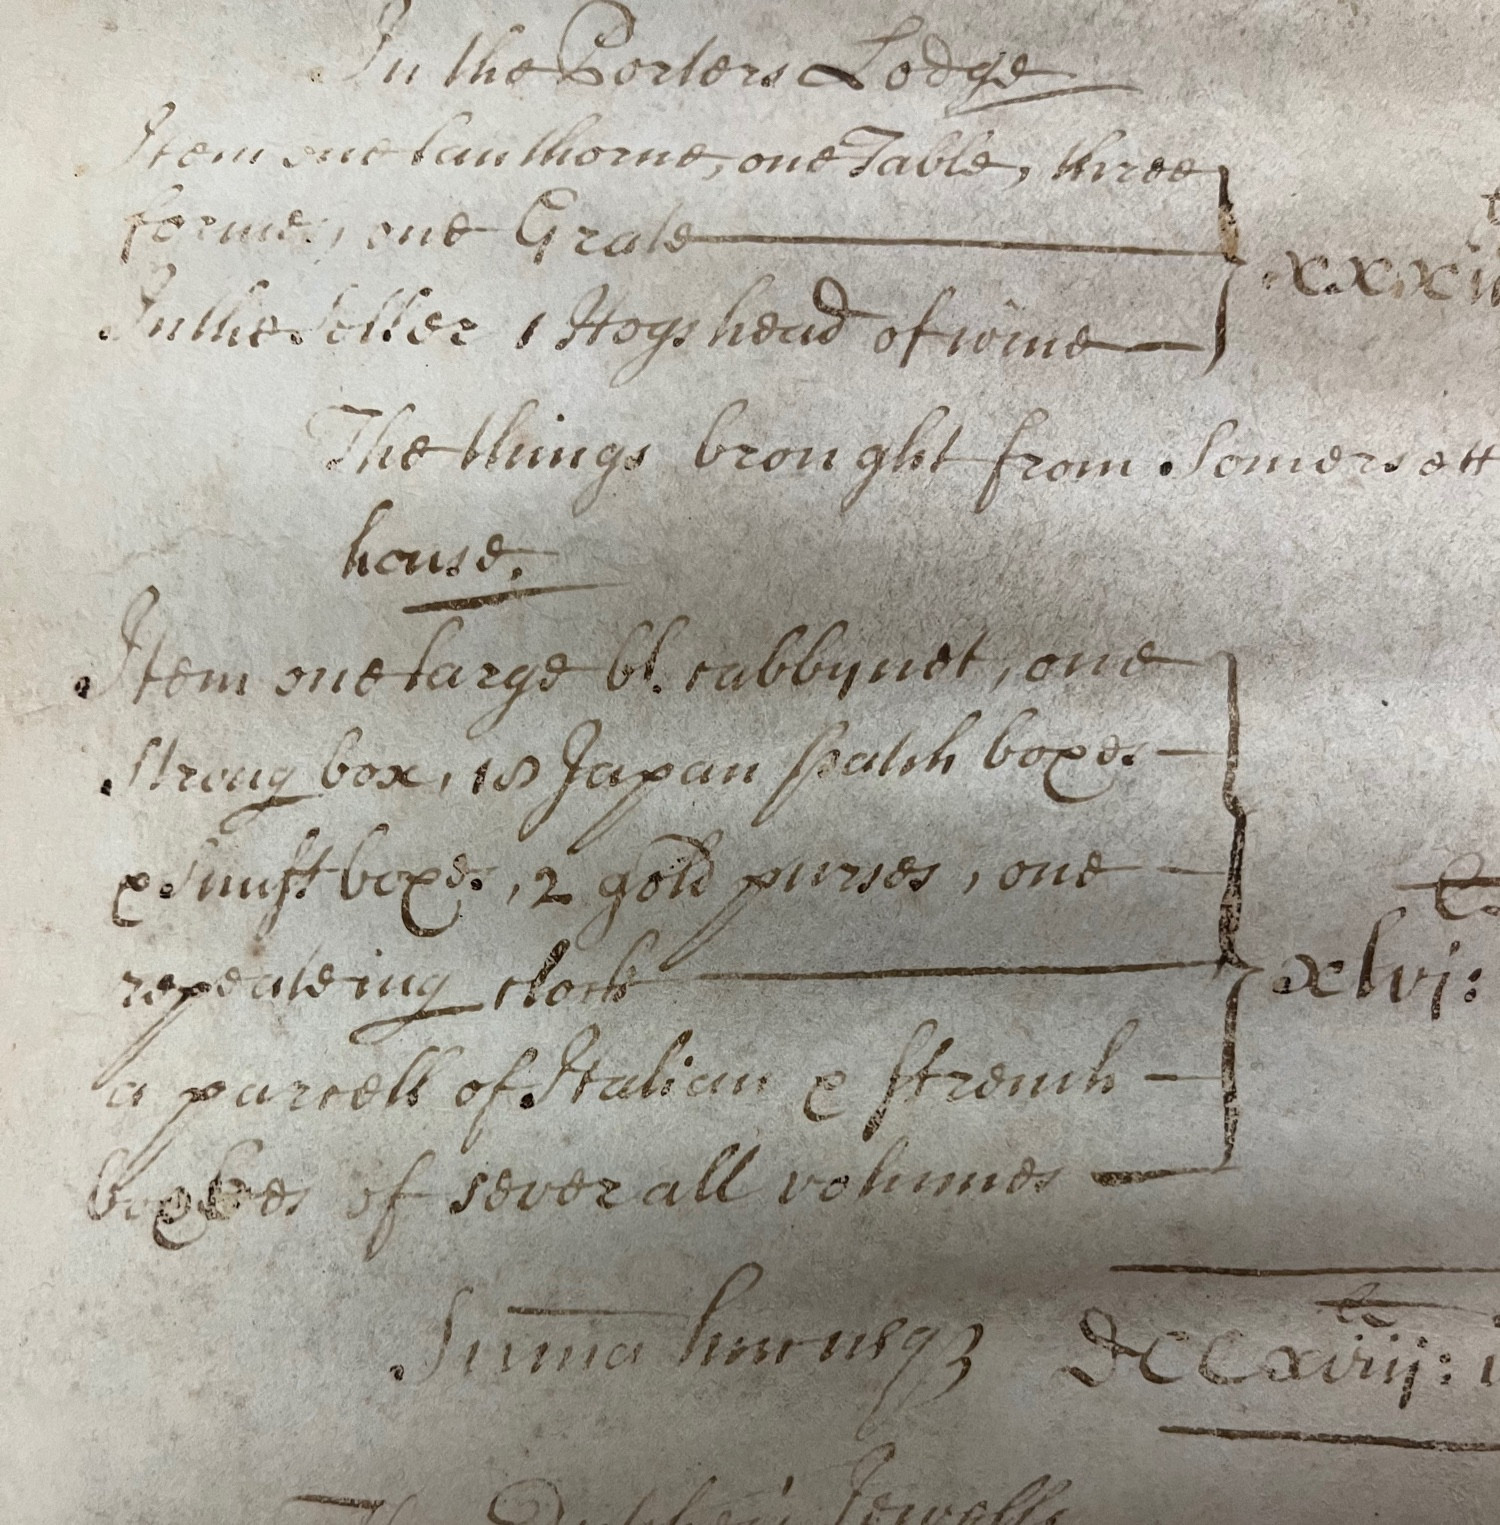 In the Porters Lodge
Item one lanthorne, one Table, three
formes, one Grate
In the Seller 1 Hogshead of wine
xxxii
The things brought from Somersett
house.
Item one large bl. cabbynet, one
strong box, 18 Japan patch boxes
& Snuff boxes, 2 gold purses, one
repeateing clock
xlvj:
a parcell of Italian & ffrench
bookes of severall volumes
Suma hucusqz DCCxviij:
The Jewells